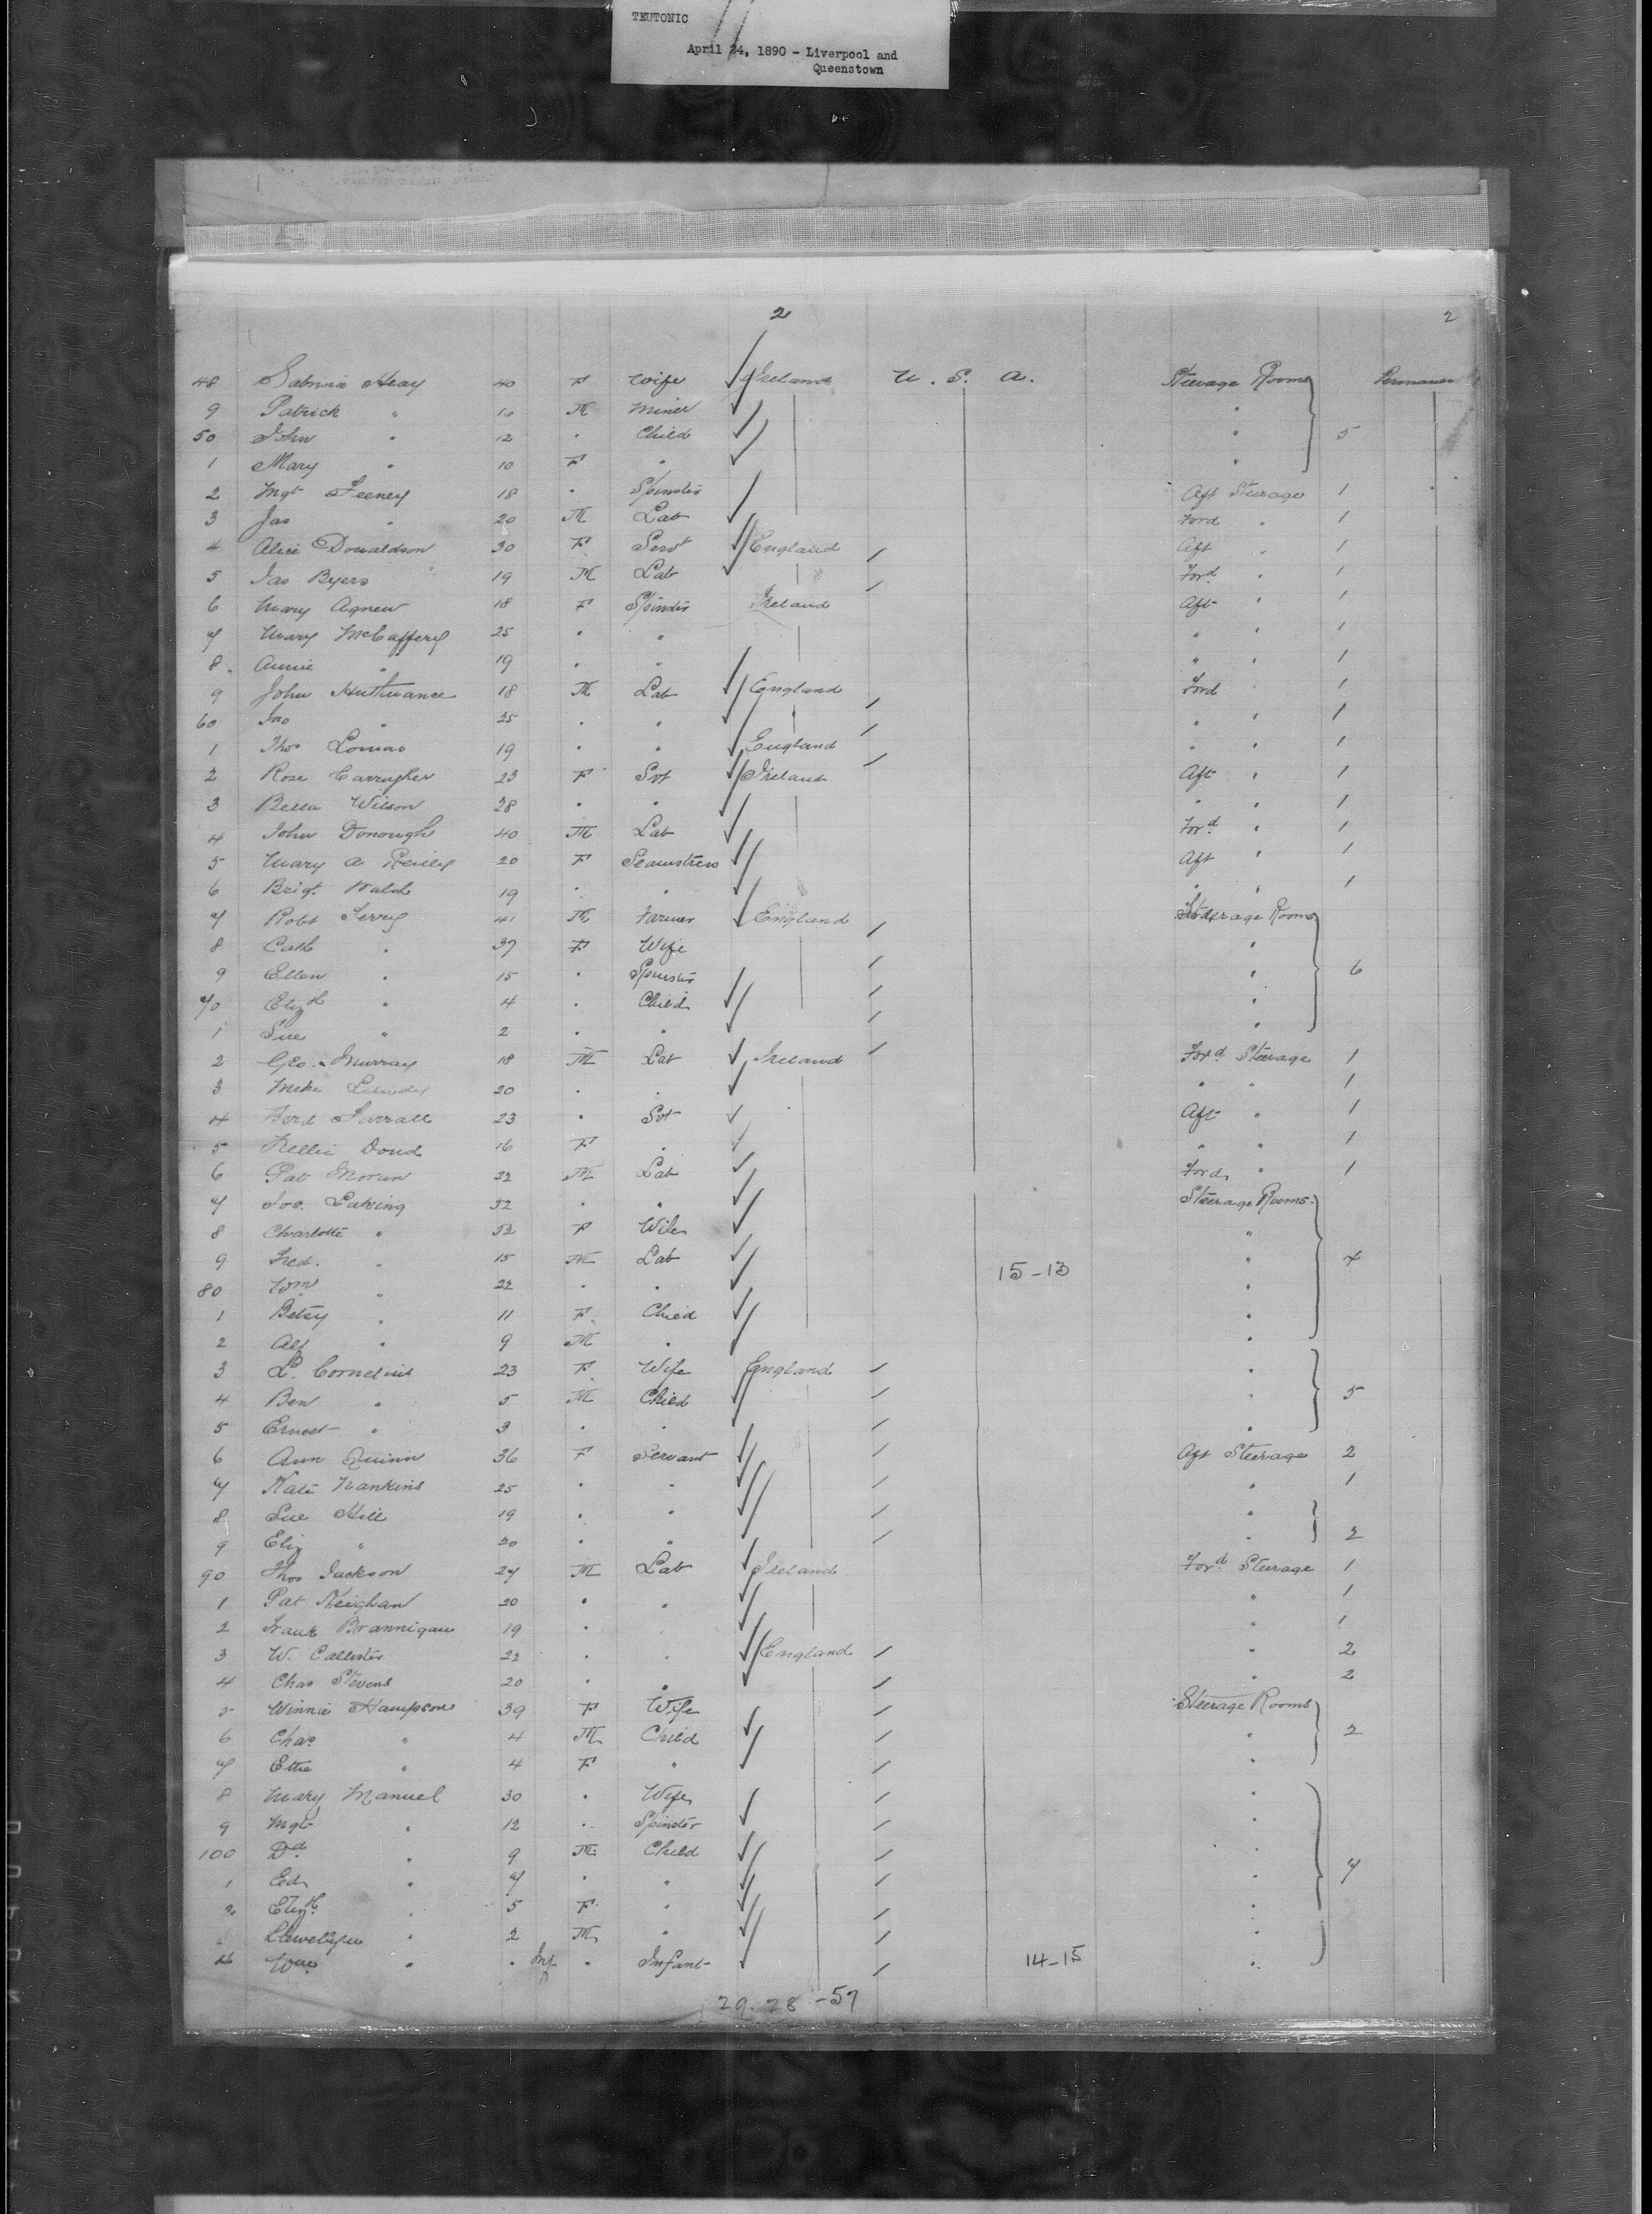 TEUTONIC
April 24, 1890 - Liverpool and
Queenstown
2 2
48 Sabina Heay 40 F Wife Ireland U. S. A. Steerage Rooms Permanent
9 Patrick " 16 M Miner "
50 John " 12 " Child " 5
1 Mary " 10 F " "
2 Mgt Feeney 18 " Spinster Aft Steerage 1
3 Jas " 20 M Lab Ford " 1
4 Alice Donaldson 30 F Servt England Aft " 1
5 Jas Byers 19 M Lab Ford " 1
6 Mary Agnew 18 F Spinster Ireland Aft " 1
7 Mary McCaffery 25 " " " " 1
8 Annie " 19 " " " " 1
9 John Huthwance 18 M Lab England Ford " 1
60 Jno " 25 " " " " 1
1 Thos Lomas 19 " " England " " 1
2 Rose Carragher 23 F Svt Ireland Aft " 1
3 Bella Wilson 28 " " " " 1
4 John Donough 40 M Lab Ford " 1
5 Mary A Reilly 20 F Seamstress Aft " 1
6 Brigt Walsh 19 " " " " 1
7 Robt Terry 41 M Farmer England Steerage Rooms
8 Cath " 37 F Wife "
9 Ellen " 15 " Spinster " 6
70 Elizth " 4 " Child "
1 Sue " 2 " " "
2 Geo. Murray 18 M Lab Ireland Ford Steerage 1
3 Mike 20 " " " " 1
4 Farrall 23 " Svt Aft " 1
5 Nellie Doud 16 F " " " 1
6 Pat Moran 22 M Lab Ford " 1
7 Jos. 52 " " Steerage Rooms
8 Charlotte " 52 F Wife "
9 Fred. " 15 M Lab 15-13 "
80 Wm " 22 " " "
1 Betsy " 11 F Child "
2 Alf " 9 M " "
3 L. Cornelius 23 F Wife England "
4 Ben " 5 M Child " 5
5 Ernest " 3 " " "
6 Ann Quinn 36 F Servant Aft Steerage 2
7 Kate Hankins 25 " " " 1
8 Sue Hill 19 " " "
9 Eliz " 20 " " " 2
90 Thos Jackson 27 M Lab Ireland Ford Steerage 1
1 Pat Keighan 20 " " " 1
2 Frank Brannigan 19 " " " 1
3 W. Callister 22 " " England " 2
4 Chas Stevens 20 " " " 2
5 Winnie Hampson 39 F Wife Steerage Rooms
6 Chas " 4 M Child " 2
7 Ettie " 4 F " "
8 Mary Manuel 30 " Wife "
9 Mgt " 12 " Spinster "
100 Dd " 9 M Child "
1 Ed " 7 " " " 7
2 Elizth " 5 F " "
Llewellyn " 2 M " "
4 Wm " " Inf " Infant 14-15 "
29-28-57